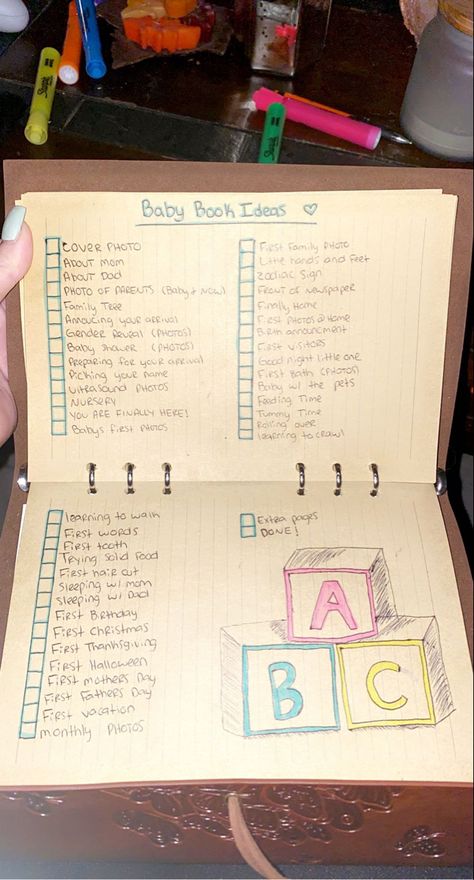 Baby Book Ideas ♡
COVER PHOTO
ABOUT MOM
ABOUT DAD
PHOTO OF PARENTS (Baby & NOW)
Family Tree
Annoucing your arrival
Gender Reveal (PHOTOS)
Baby shower (PHOTOS)
Preparing for your arrival
Picking your name
Ultrasound PHOTOS
NURSERY
YOU ARE FINALLY HERE!
Babys first PHOTOS
First Family PHOTO
Little hands and feet
Zodiac Sign
Front of Newspaper
Finally Home
First PHOTOS @ Home
Birth announcment
First visitors
Good night little one
First Bath (PHOTOS)
Baby w/ the pets
Feeding Time
Tummy Time
Rolling over
learning to crawl
learning to walk
First words
First tooth
Trying solid food
First hair cut
Sleeping w/ mom
Sleeping w/ Dad
First Birthday
First Christmas
First Thanksgiving
First Halloween
First mothers Day
First Fathers Day
First vacation
monthly PHOTOS
Extra pages
DONE!
A
B
C
Sharpie